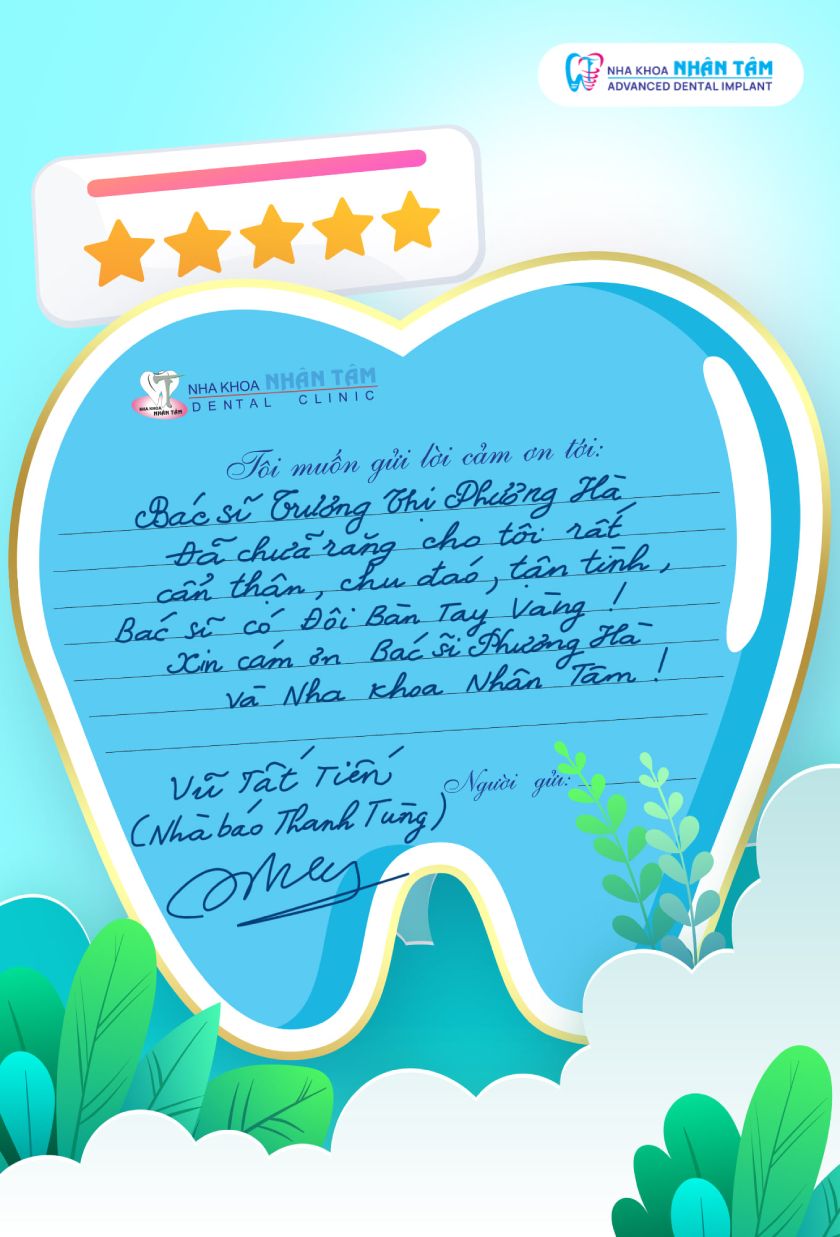 NHA KHOA NHÂN TÂM
ADVANCED DENTAL IMPLANT
NHA KHOA NHÂN TÂM
DENTAL CLINIC
NHA KHOA
NHÂN TÂM
Tôi muốn gửi lời cảm ơn tới:
Bác sĩ Trương Thị Phương Hà
Đã chữa răng cho tôi rất
cẩn thận, chu đáo, tận tình,
Bác sĩ có Đôi Bàn Tay Vàng!
Xin cám ơn Bác sĩ Phương Hà
và Nha khoa Nhân Tâm!
Người gửi:
Vũ Tất Tiến
(Nhà báo Thanh Tùng)